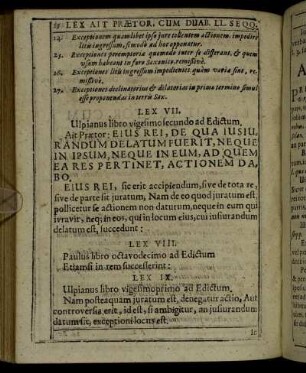 LEX AIT PRÆTOR, CUM DUAB. LL. SEQQ.
24. Exceptionem quamlibet ipso jure tollentem actionem, impedire
litis ingressum, si modo ad hoc opponatur.
25. Exceptiones peremptoria quomodo inter se differant, & quem
usum habeant in foro Saxonico, remissivè.
26. Exceptiones litis ingressum impedientes, quàm variæ sint, re-
missivè.
27. Exceptiones declinatorias & dilatorias in primo termino simul
esse proponendas in terris Sax.
LEX VII.
Ulpianus libro vigesimo secundo ad Edictum,
Ait Prætor: EIUS REI, DE QUA IUSIU-
RANDUM DELATUM FUERIT, NEQUE
IN IPSUM, NEQUE IN EUM, AD QUEM
EA RES PERTINET, ACTIONEM DA-
BO.
EIUS REI, sic erit accipiendum, sive de tota re,
sive de parte sit juratum, Nam de eo quod juratum est,
pollicetur se actionem non daturum, neque in eum qui
juravit, neq; in eos, qui in locum eius, cui jusjurandum
delatum est, succedunt:
LEX VIII.
Paulus libro octavodecimo ad Edictum
Etiamsi in rem successerint:
LEX IX.
Ulpianus libro vigesimoprimo ad Edictum,
Nam posteaquam juratum est, denegatur actio, Aut
controversia erit, id est, si ambigitur, an jusjurandum
datum sit, exceptioni locus est.